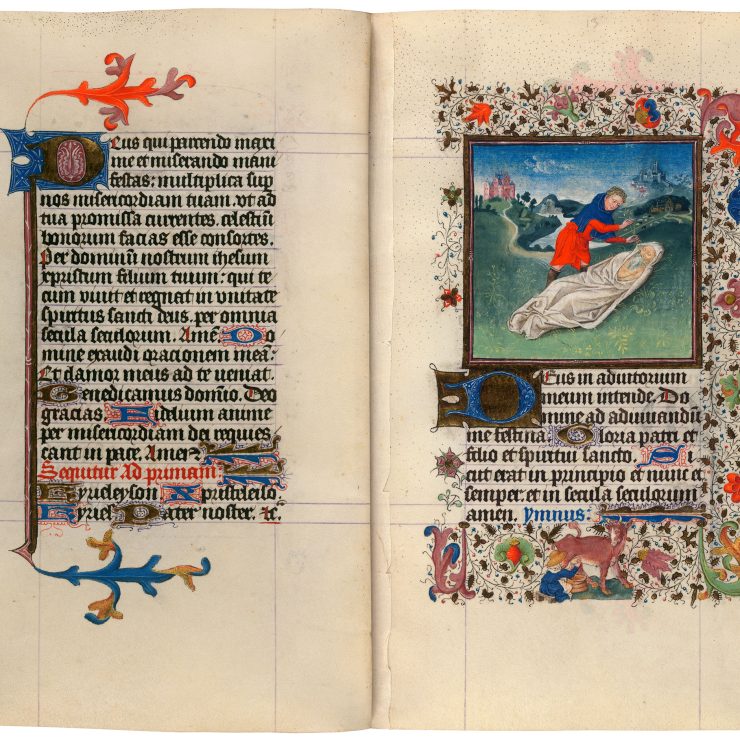 Deus qui parcendo maxi
me et miserando mani
festas: multiplica sup
nos misericordiam tuam. vt ad
tua promissa currentes. celestiū
bonorum facias esse consortes.
Per dominū nostrum ihesum
xpristum filium tuum: qui te
cum viuit et regnat in vnitate
spiritus sancti deus. per omnia
secula seculorum. Amē Do
mine exaudi oracionem meā:
Et clamor meus ad te veniat.
Benedicamus domīo. Deo
gracias Fidelium anime
per misericordiam dei requies
cant in pace. Amen
Sequitur Ad primam
Kyrieleyson Xpristeleiso
Kyriel Pater noster. ꝛc.
Deus in adiutorium
meum intende. Do
mine ad adiuuandū
me festina. Gloria patri et
filio et spiritui sancto. Si
cut erat in principio et nunc et
semper. et in secula seculorum
amen. ymnus.